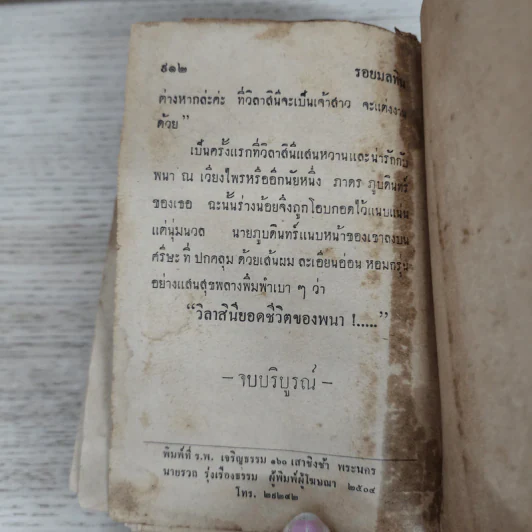 ๙๑๒ รอยมลทิน
ต่างหากล่ะค่ะ ที่วิลาสินีจะเป็นเจ้าสาว จะแต่งงาน
ด้วย”
เป็นครั้งแรกที่วิลาสินีแสนหวานและน่ารักกับ
พนา ณ เวียงไพรหรืออีกนัยหนึ่ง ภาดร ภูบดินทร์
ของเธอ ฉะนั้นร่างน้อยจึงถูกโอบกอดไว้แนบแน่น
แต่นุ่มนวล นายภูบดินทร์แนบหน้าของเขาลงบน
ศรีษะ ที่ ปกคลุม ด้วยเส้นผม ละเอียนอ่อน หอมกรุ่น
อย่างแสนสุขพลางพึมพำเบา ๆ ว่า
“วิลาสินียอดชีวิตของพนา !.....”
— จบบริบูรณ์ —
พิมพ์ที่ ร.พ. เจริญธรรม ๑๖๐ เสาชิงช้า พระนคร
นายรวล รุ่งเรืองธรรม ผู้พิมพ์ผู้โฆษณา ๒๕๐๔
โทร. ๒๔๒๔๒